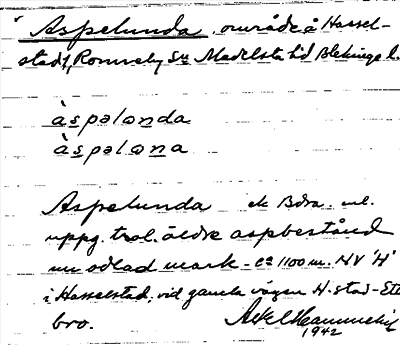 Aspelunda, område å Hassel-
stad, Ronneby Sn Medelsta hd Blekinge l.
àspəlonda
àspəlona
Aspelunda ek Bdra. ul.
uppg. trol. äldre aspbestånd
nu odlad mark - ca 1100 m. NV 'H'
i Hasselstad, vid gamla vägen H-stad-Ette
bro. Axel
1942